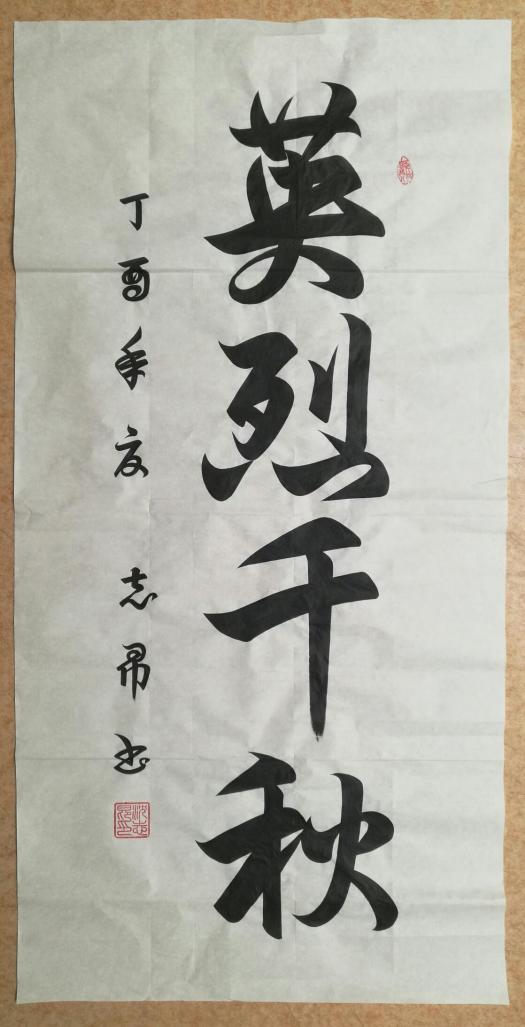 英烈千秋
丁酉年夏 志昂书